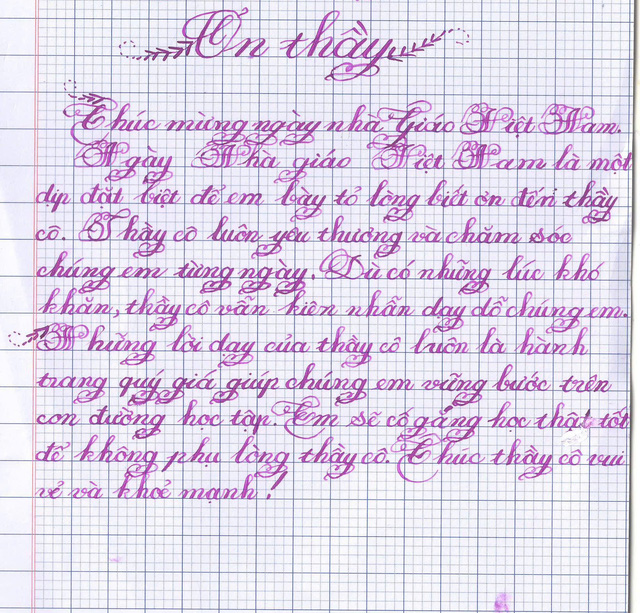 Ơn thầy
Chúc mừng ngày nhà Giáo Việt Nam.
Ngày Nhà giáo Việt Nam là một
dịp đặt biệt để em bày tỏ lòng biết ơn đến thầy
cô. Thầy cô luôn yêu thương và chăm sóc
chúng em từng ngày. Dù có những lúc khó
khăn, thầy cô vẫn kiên nhẫn dạy dỗ chúng em.
Những lời dạy của thầy cô luôn là hành
trang quý giá giúp chúng em vững bước trên
con đường học tập. Em sẽ cố gắng học thật tốt
để không phụ lòng thầy cô. Chúc thầy cô vui
vẻ và khoẻ mạnh!